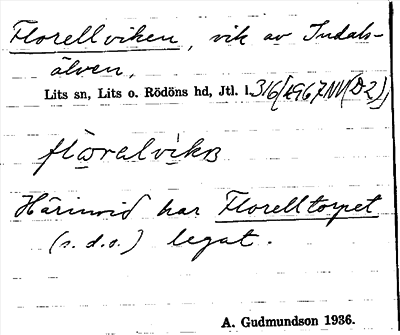 Florellviken, vik av Indals-
älven,
Lits sn, Lits o. Rödöns hd, Jtl. l.
flωralvikɞ
Härinvid har Florelltorpet
(s. d. o.) legat.
A. Gudmundson 1936.